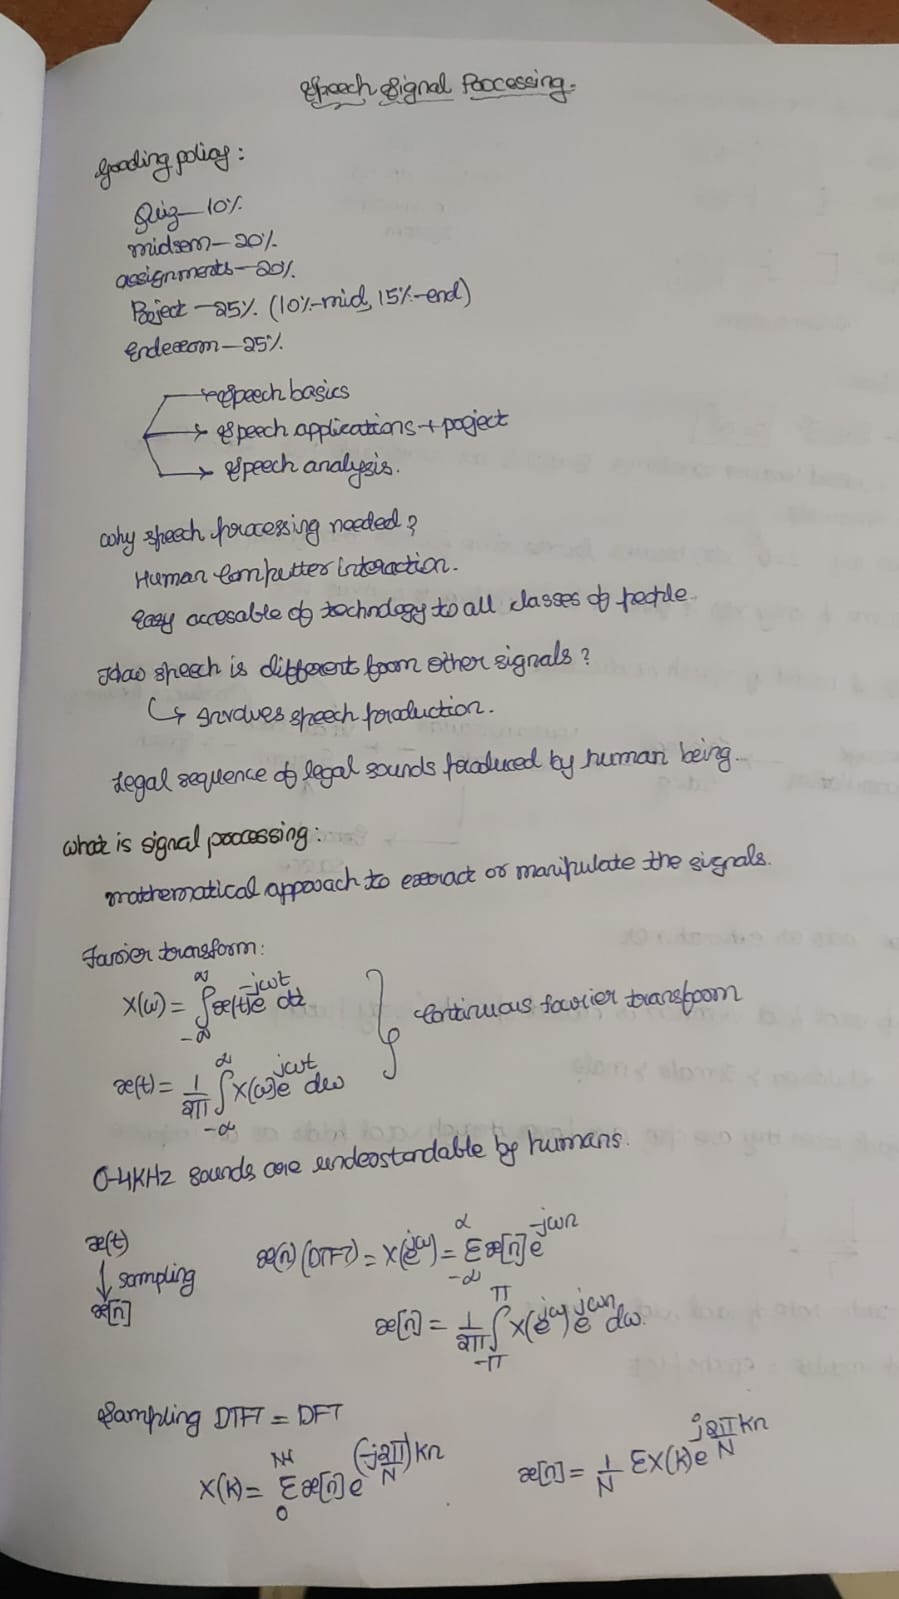 Speech Signal Processing.
Grading policy:
Quiz - 10%
midsem - 20%
assignments - 20%
Project - 25% (10% - mid, 15% - end)
Endexam - 25%
→ speech basics
→ speech applications + project
→ speech analysis.
Why speech processing needed?
Human Computter interaction.
Easy accesable of technology to all classes of people.
How speech is different from other signals?
↳ Involves speech production.
Legal sequence of legal sounds produced by human being.
What is signal processing:
mathematical approach to extract or manipulate the signals.
Fourier transform:
X(ω) = ∫_{-∞}^{∞} x(t) e^{-jωt} dt
x(t) = 1/2π ∫_{-∞}^{∞} X(ω) e^{jωt} dω
} Continuous fourier transform
0-4KHz sounds are understandable by humans.
x(t)
↓ sampling
x[n]
x(n) (DTFT) = X(e^{jω}) = Σ_{-∞}^{∞} x[n] e^{-jωn}
x[n] = 1/2π ∫_{-π}^{π} X(e^{jω}) e^{jωn} dω.
Sampling DTFT = DFT
X(k) = Σ_{0}^{N-1} x[n] e^{(-j2π/N)kn}
x[n] = 1/N Σ X(k) e^{j2π/N kn}